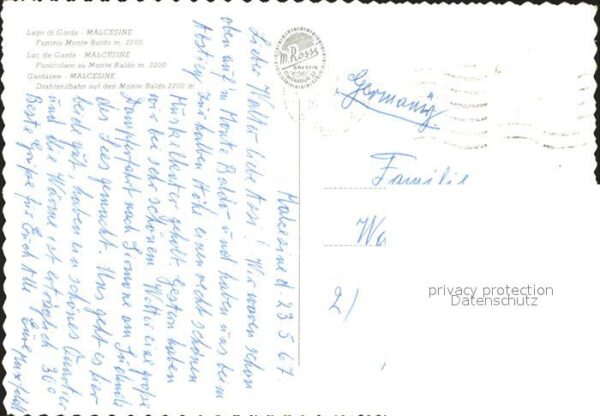 Lago di Garda - MALCESINE
Funivia Monte Baldo m. 2200
Lac de Garda - MALCESINE
Funiculare au Monte Baldo m. 2200
Gardasee - MALCESINE
Drahtseilbahn auf den Monte Baldo 2200 m
Malcesine d 23 5 67.
Lieber Walter liebe Assi! Wir waren schon
oben auf'm Monte Baldo und haben uns beim
Abstieg zur halben Höhe einen recht schönen
Muskelkater geholt. Gestern haben
wir bei sehr schönem Wetter eine große
Dampferfahrt nach Sirmione am Südende
des Sees gemacht. Uns geht es hier
beide gut haben ein schönes Quartier
und die Wärme ist erträglich 30°
Beste Grüße für Euch Alle Eure
M. Rossi
BRESCIA
Germany
Familie
Wa
2/
privacy protection
Datenschutz